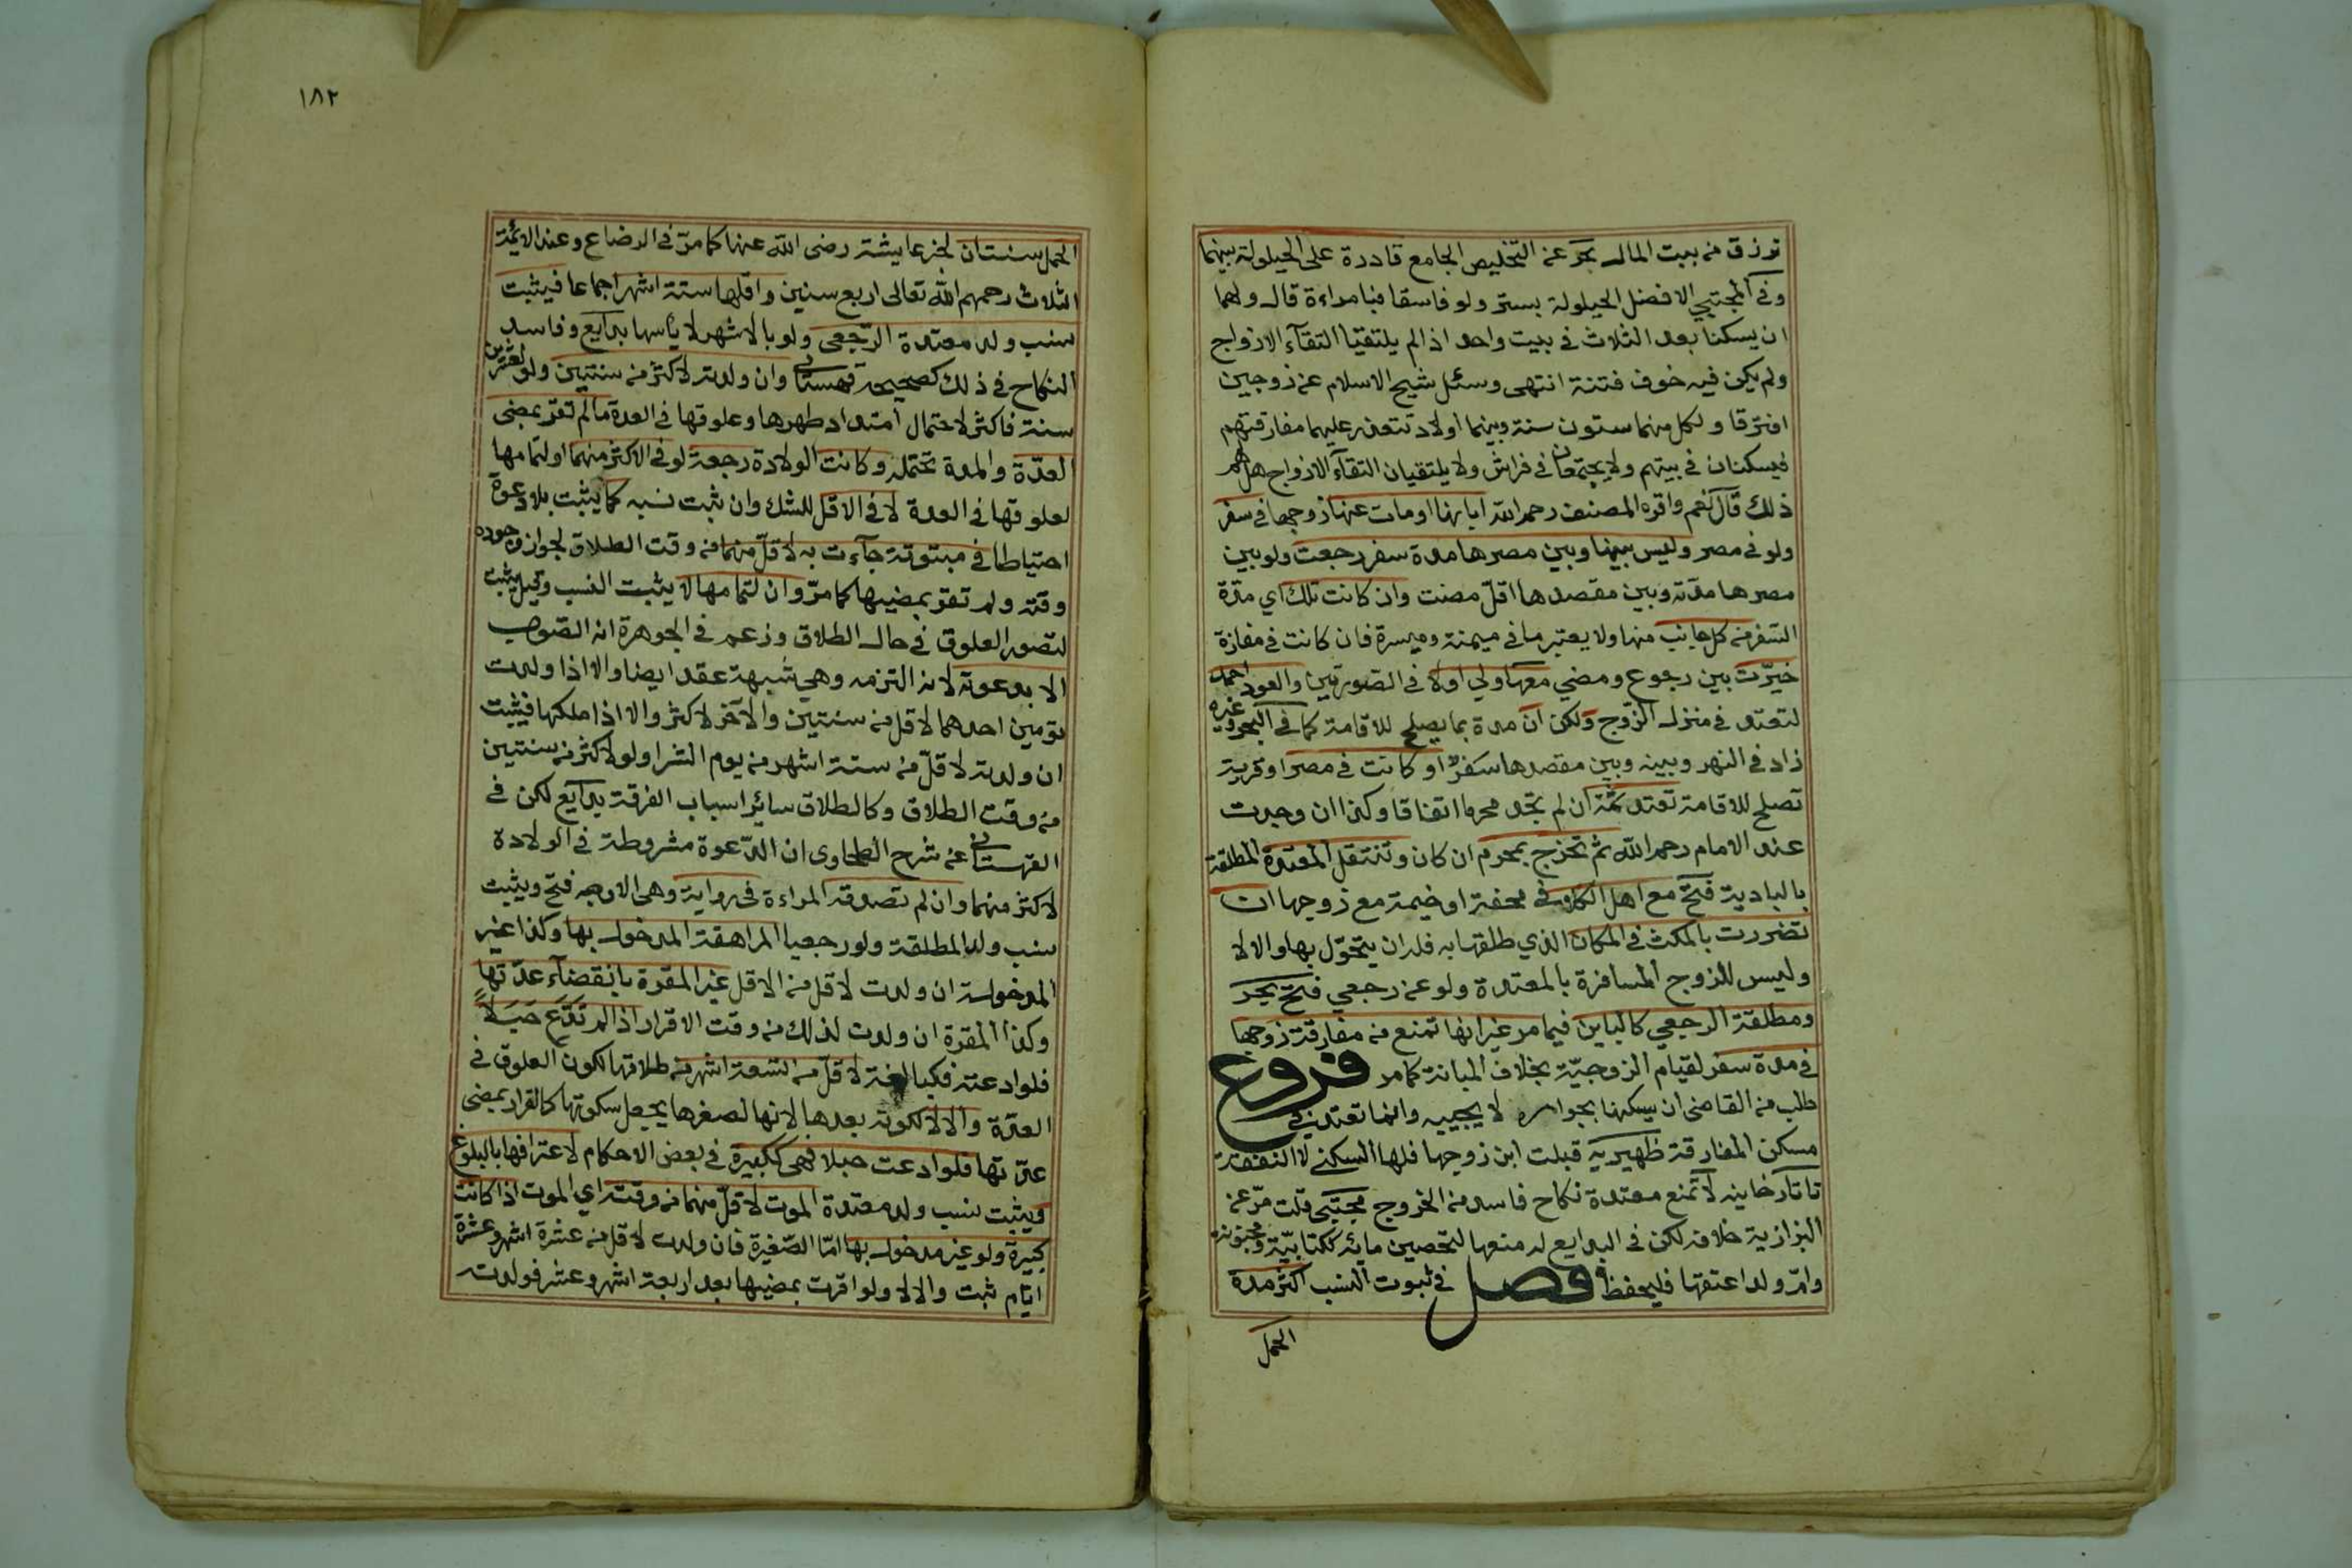 ترزق من بيت المال بحر عن التخليص الجامع قادرة على الحيلولة بينهما
وفي المجتبي الافضل الحيلولة بستر ولو فاسقا فبامراءة قال ولهما
ان يسكنا بعد الثلاث في بيت واحد اذا لم يلتقيا التقآء الازواج
ولم يكن فيه خوف فتنة انتهى وسئل شيخ الاسلام عن زوجين
افترقا ولكل منهما ستون سنة وبينهما اولاد تتعذر عليهما مفارقتهم
فيسكنان في بيتهم ولا يجتمعان في فراش ولا يلتقيان التقآء الازواج هل لهم
ذلك قال نعم واقره المصنف رحمه الله ابانها او مات عنها زوجها في سفر
ولو في مصر وليس بينها وبين مصرها مدة سفر رجعت ولو بين
مصرها مدته وبين مقصدها اقل مضت وان كانت تلك اي مدة
السفر من كل جانب منها ولا يعتبر ما في ميمنة وميسرة فان كانت في مفازة
خيرت بين رجوع ومضي معها ولي اولا في الصورتين والعود احمد
لتعتد في منزل الزوج ولكن ان مدة بما يصلح للاقامة كما في البحر وغيره
زاد في النهر وبينه وبين مقصدها سفر او كانت في مصر او قرية
تصلح للاقامة تعتد ثمة ان لم تجد محرما اتفاقا وكذا ان وجدت
عند الامام رحمه الله ثم تخرج بمحرم ان كان وتنتقل المعتدة المطلقة
بالبادية فتح مع اهل الكلاء في محفة او خيمة مع زوجها ان
تضررت بالمكث في المكان الذي طلقها به فله ان يتحول بها والا لا
وليس للزوج المسافرة بالمعتدة ولو عن رجعي فتح بحر
ومطلقة الرجعي كالباين فيما مر غير انها تمنع من مفارقة زوجها
في مدة سفر لقيام الزوجية بخلاف المبانة كما مر فروع
طلب من القاضي ان يسكنها بجواره لا يجيبه وانما تعتد في
مسكن المفارقة ظهيرية قبلت ابن زوجها فلها السكنى لا النفقة
تاتارخانيه لا تمنع معتدة نكاح فاسد من الخروج مجتبى قلت مر عن
البزازية خلافه لكن في البدايع له منعها لتحصين مائه ككتابية ومجنونة
وام ولد اعتقها فليحفظ فصل في ثبوت النسب اكثر مدة
الحمل
١٨٢
الحمل سنتان لخبر عايشة رضى الله عنها كما مر في الرضاع وعند الائمة
الثلاث رحمهم الله تعالى اربع سنين واقلها ستة اشهر اجماعا فيثبت
نسب ولد معتدة الرجعي ولو بالاشهر لاياسها بدايع وفاسد
النكاح في ذلك كصحيحه قهستاني وان ولدته لاكثر من سنتين ولو لعشرين
سنة فاكثر لاحتمال امتداد طهرها وعلوقها في العدة ما لم تقر بمضي
العدة والمدة تحتمله وكانت الولادة رجعة لو في الاكثر منهما اولتمامها
لعلوقها في العدة لا في الاقل للشك وان ثبت نسبه كما يثبت بلا دعوة
احتياطا في مبتوتة جآءت به لاقل منهما من وقت الطلاق لجواز وجوده
وقته ولم تقر بمضيها كما مر وان لتمامها لا يثبت النسب وقيل يثبت
لتصور العلوق في حال الطلاق وزعم في الجوهرة انه الصواب
الا بدعوته لانه التزمه وهي شبهة عقد ايضا والا اذا ولدت
توءمين احدهما لاقل من سنتين والآخر لاكثر والا اذا ملكها فيثبت
ان ولدته لاقل من ستة اشهر من يوم الشرا ولو لاكثر من سنتين
من وقت الطلاق وكالطلاق سائر اسباب الفرقة بدايع لكن في
القهستاني عن شرح الطحاوى ان الدعوة مشروطة في الولادة
لاكثر منهما وان لم تصدقه المراءة في رواية وهي الاوجه فتح ويثبت
نسب ولد المطلقة ولو رجعيا المراهقة المدخول بها وكذا غير
المدخولة ان ولدت لاقل من الاقل غير المقرة بانقضآء عدتها
وكذا المقرة ان ولدت لذلك من وقت الاقرار اذا لم تدع حبلا
فلو ادعته فكبالغة لاقل من تسعة اشهر من طلاقها لكون العلوق في
العدة والا لا لكونه بعدها لانها لصغرها يجعل سكوتها كالاقرار بمضي
عدتها فلو ادعت حبلا فهي ككبيرة في بعض الاحكام لاعترافها بالبلوغ
ويثبت نسب ولد معتدة الموت لاقل منهما من وقته اي الموت اذا كانت
كبيرة ولو غير مدخول بها اما الصغيرة فان ولدت لاقل من عشرة اشهر وعشرة
ايام ثبت والا لا ولو اقرت بمضيها بعد اربعة اشهر وعشر فولدت